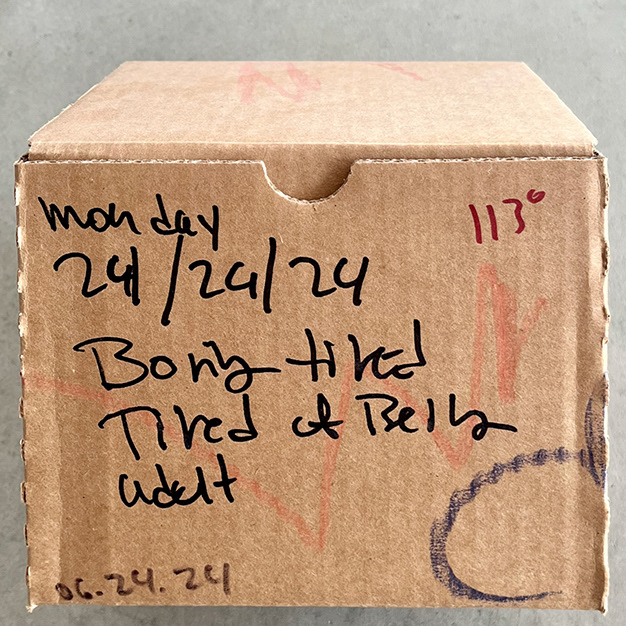 monday
113°
24/24/24
Boring tired
Tired of Being
adult
06.24.24